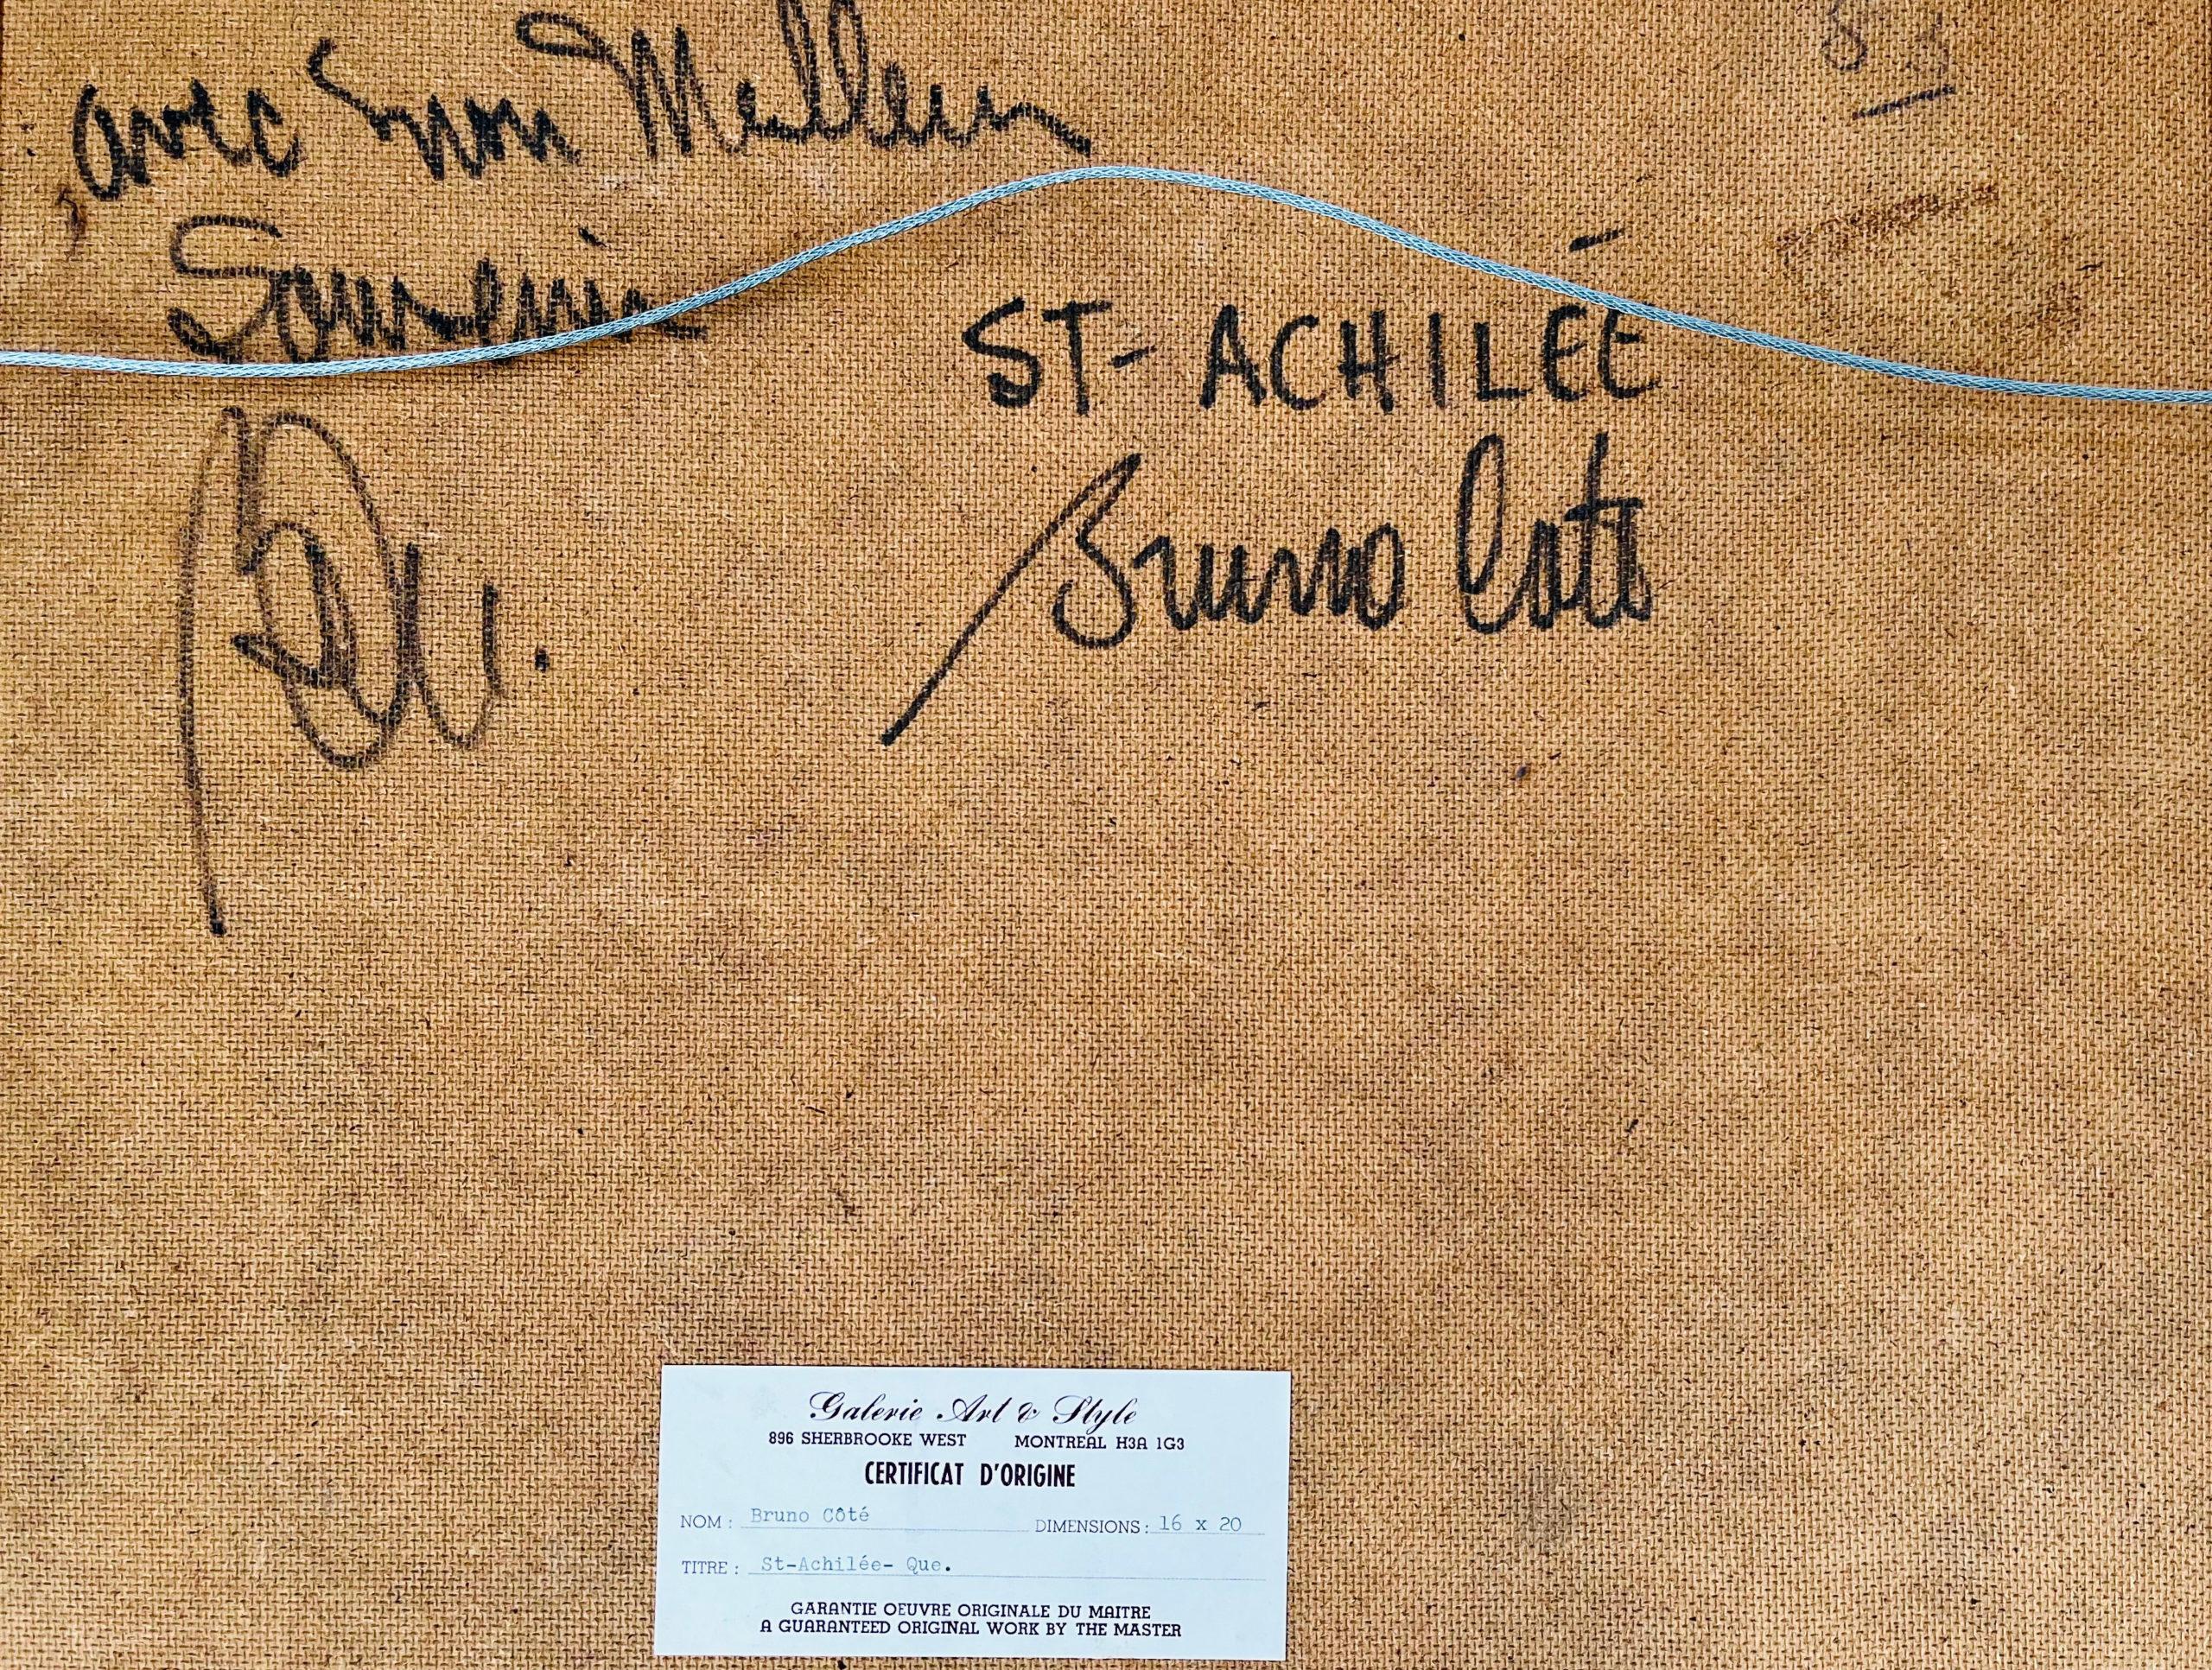 avec mon Meilleur
Souvenir
ST-ACHILÉE
Bruno Coté
Galerie Art & Style
896 SHERBROOKE WEST MONTREAL H3A 1G3
CERTIFICAT D'ORIGINE
NOM : Bruno Côté DIMENSIONS : 16 x 20
TITRE : St-Achilée- Que.
GARANTIE OEUVRE ORIGINALE DU MAITRE
A GUARANTEED ORIGINAL WORK BY THE MASTER